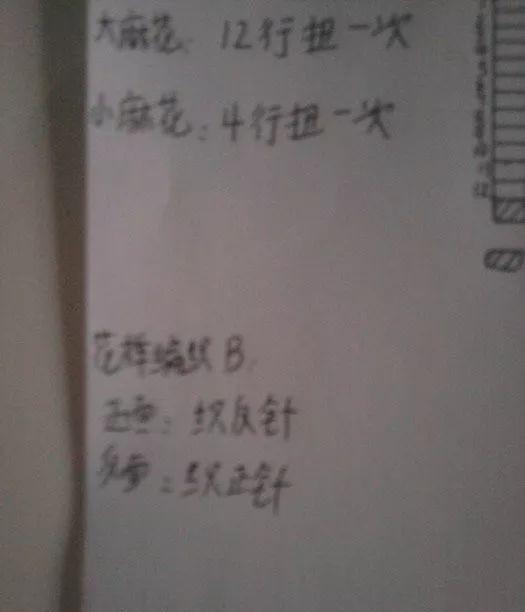 大麻花：12行扭一次
小麻花：4行扭一次
花样编织B.
正面：织反针
反面：织正针